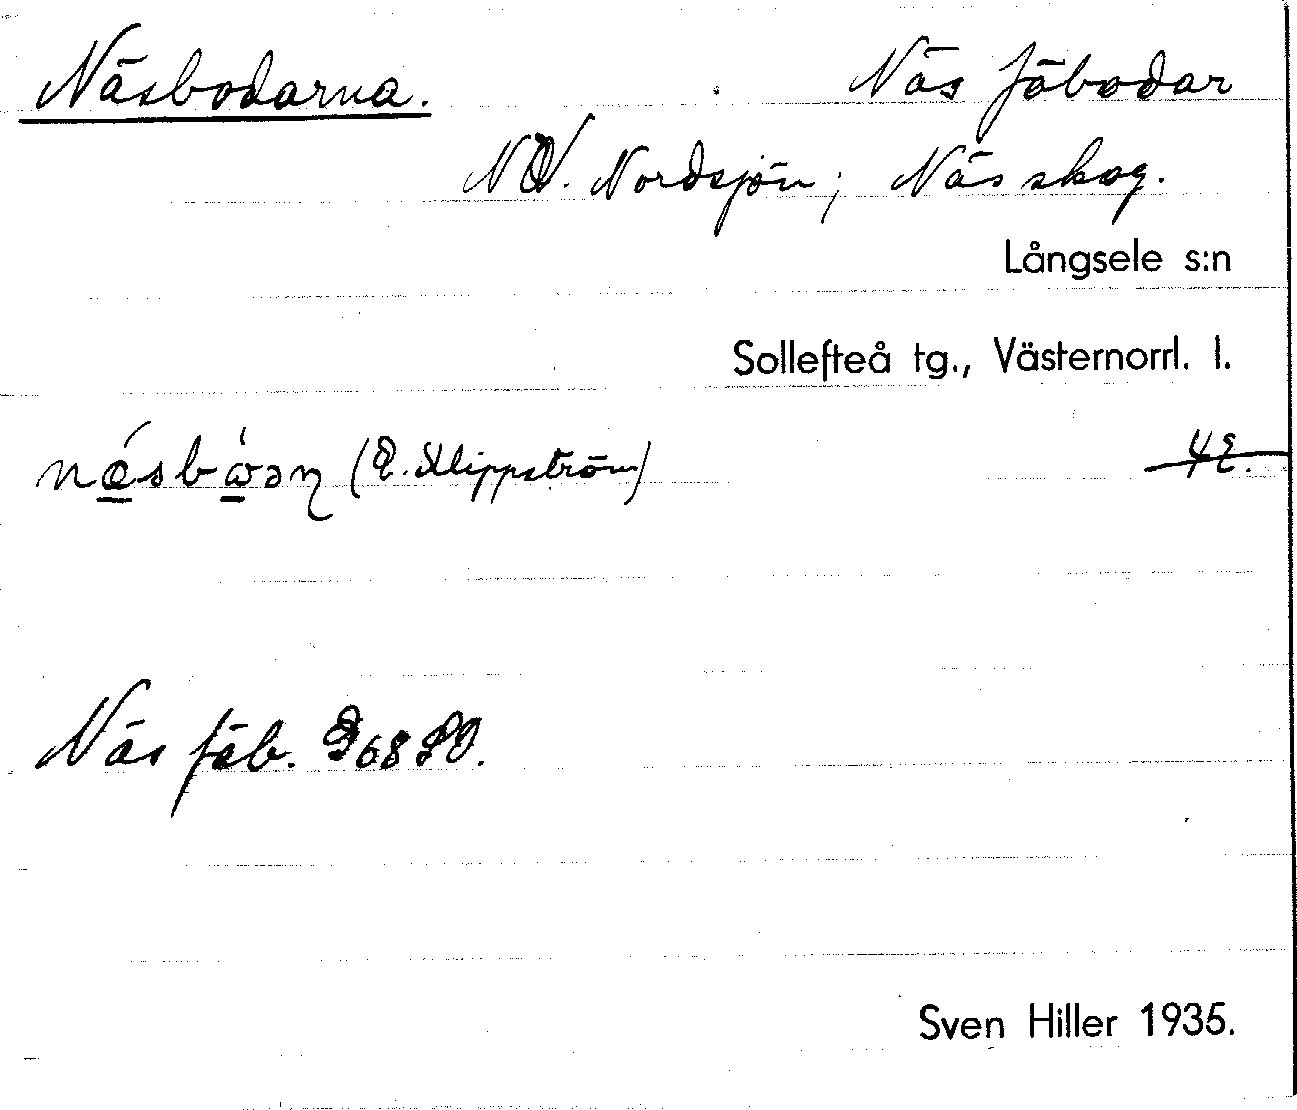 Näsbodarna. Näs fäbodar
NV. Nordsjön; Näs skog.
Långsele s:n
Sollefteå tg., Västernorrl. l.
(E. Klippström)
Näs fäb.
Sven Hiller 1935.